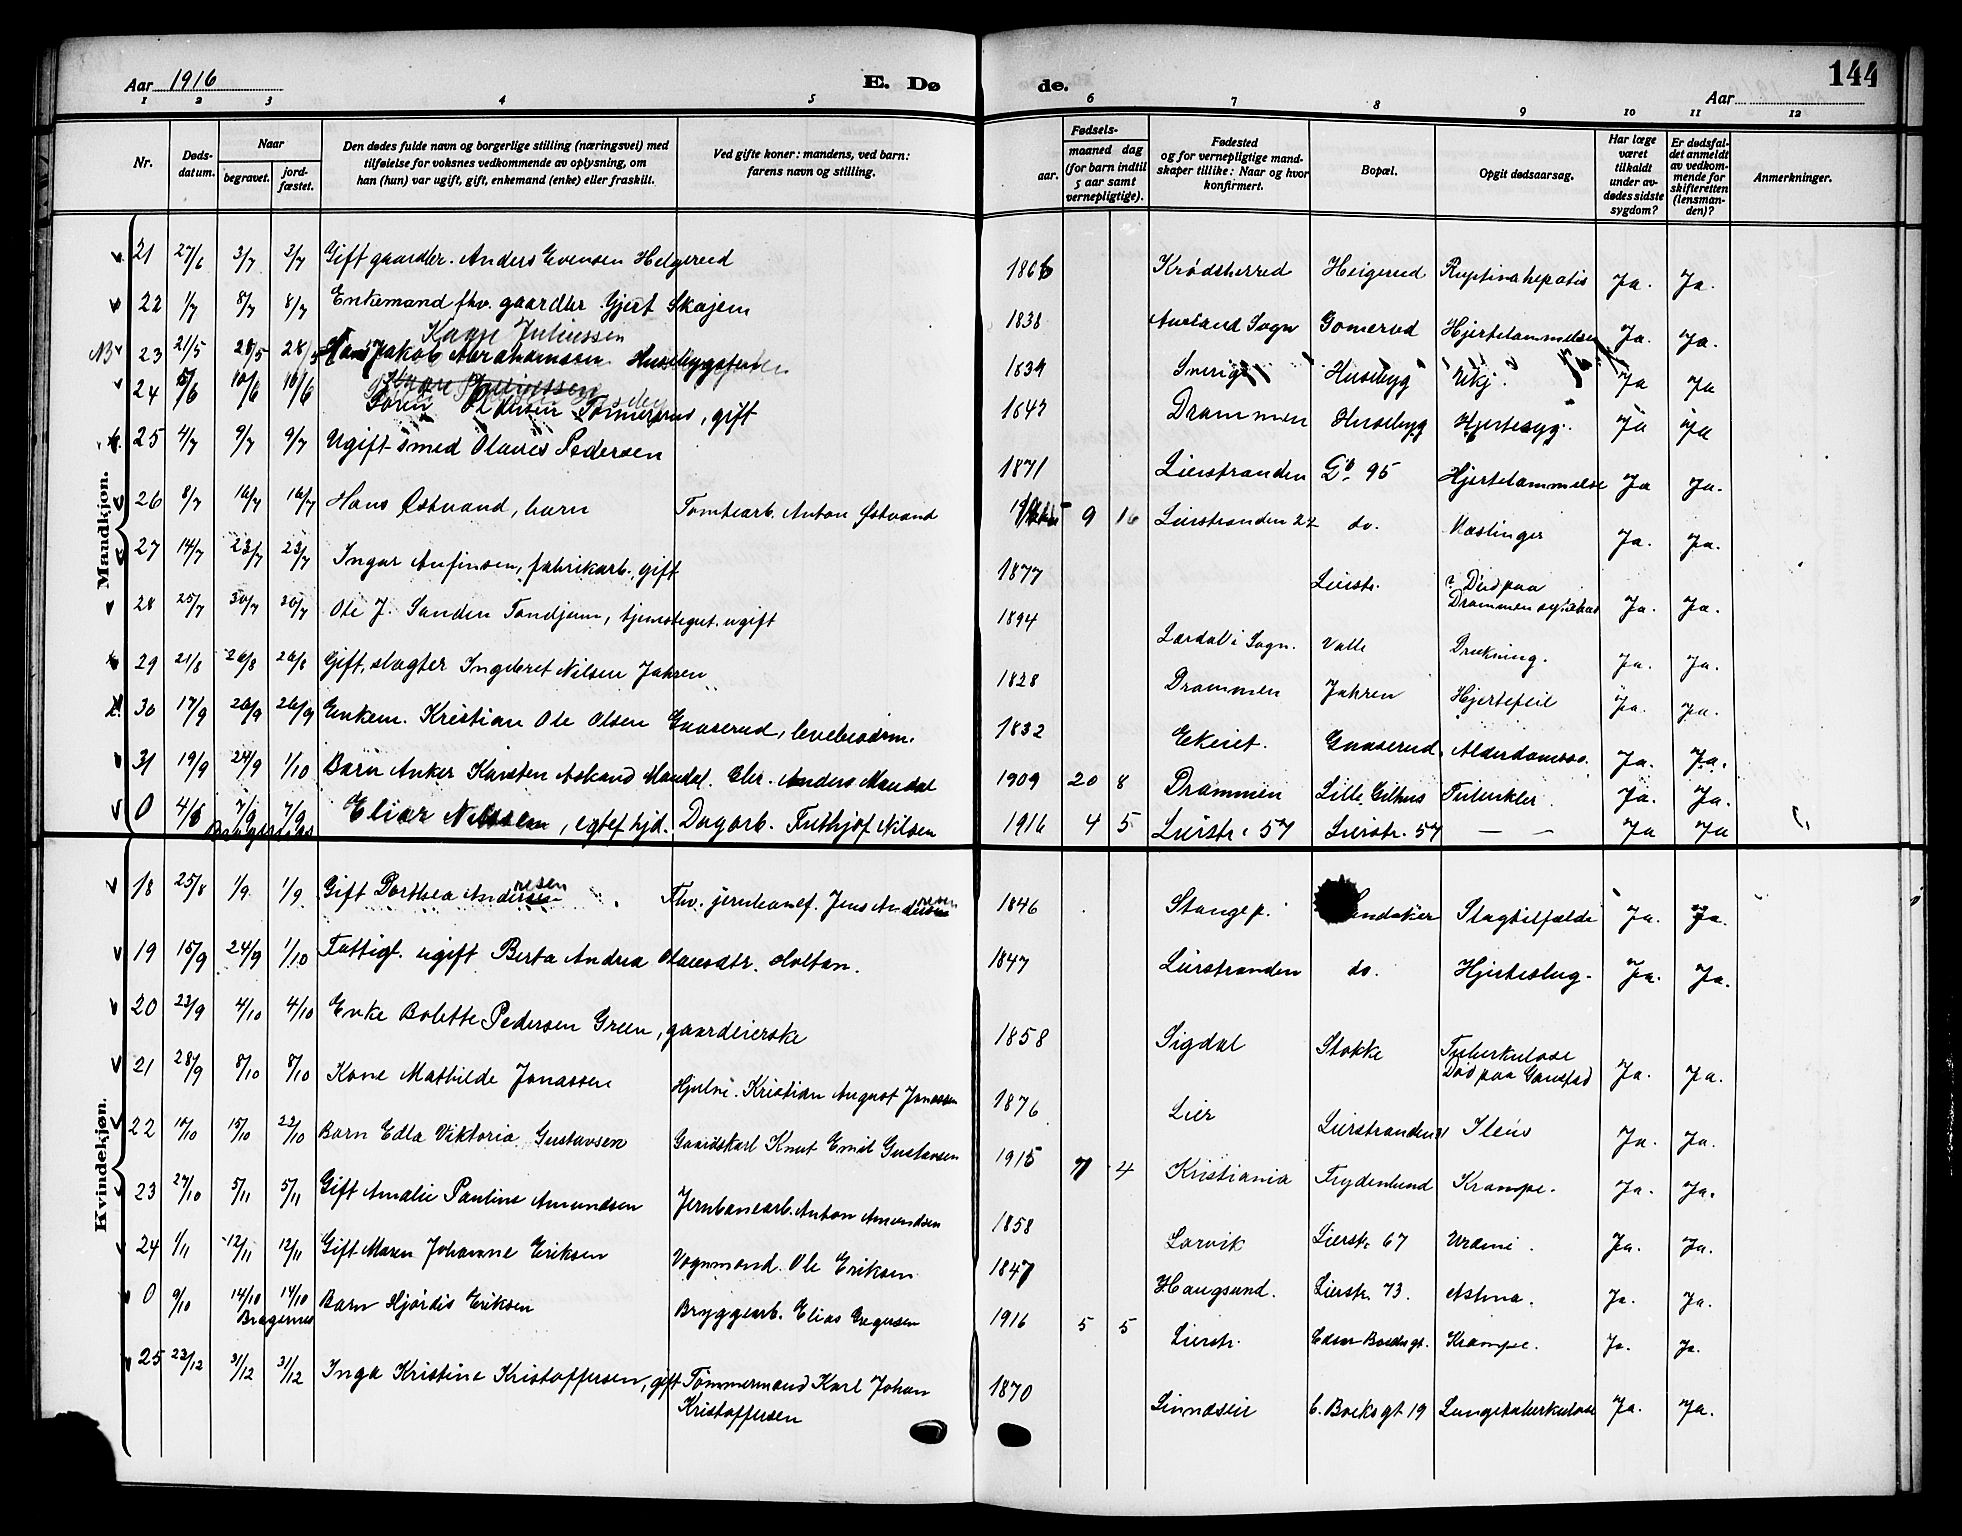 Aar 1916
E. Døde.
Aar
144
1 2 3 4 5 6 7 8 9 10 11 12
Nr.
Døds-
datum.
Naar
begravet.
jord-
fæstet.
Den dødes fulde navn og borgerlige stilling (næringsvei) med
tilføielse for voksnes vedkommende av oplysning, om
han (hun) var ugift, gift, enkemand (enke) eller fraskilt.
Ved gifte koner: mandens, ved barn:
farens navn og stilling.
aar.
Fødsels-
maaned dag
(for barn indtil
5 aar samt
vernepligtige).
Fødested
og for vernepligtige mand-
skaper tillike: Naar og hvor
konfirmert.
Bopæl.
Opgit dødsaarsag.
Har læge
været
tilkaldt
under av-
dødes sidste
sygdom?
Er dødsfal-
det anmeldt
av vedkom-
mende for
skifteretten
(lensman-
den)?
Anmerkninger.
Mandkjøn.
21 27/6 3/7 3/7 Gift gaardbr. Anders Evensen Helgerud 1866 Krødsherred Heigerud Ruptina hepatis Ja. Ja.
22 1/7 8/7 8/7 Enkemand fhv. gaardbr Gjert Skajem 1838 Aurland Sogn Gomerud Hjertelammelse Ja. Ja.
Kaare Juliussen
NB 23 21/5 28/5 28/5 Jakob Abrahamsen 1839 Sverige Husebyg Ukj. Ja Ja
24 5/6 10/6 10/6 Søren Oldersen, gift 1847 Drammen Husebyg Hjertesyg. Ja Ja
25 4/7 9/7 9/7 Ugift smed Olaves Pedersen 1871 Lierstranden Do 95 Hjertelammelse Ja Ja.
26 8/7 16/7 16/7 Hans Østvand, barn Tomtearb. Anton Østvand 9 16 Lierstranden 22 do. Mæslinger Ja. Ja.
27 14/7 23/7 23/7 Ingar Anfinsen, fabrikarb., gift 1877 Lierstr. ? Død paa
Drammen sykehus Ja. Ja.
28 25/7 30/7 30/7 Ole J. Sanden Tondjum, tjenestegut. ugift 1894 Lærdal i Sogn. Valle Drukning. Ja. Ja.
29 21/8 26/8 26/8 Gift, slagter Ingebret Nilsen Jahren 1828 Drammen Jahren Hjertefeil Ja. Ja.
30 17/9 26/9 26/9 Enkem. Kristian Ole Olsen Gaaserud, levebrødm. 1832 Ekeiet. Gaaserud Alderdomsso. Ja. Ja.
31 19/9 24/9 1/10 Barn Anker Karsten Askand Mandal. Chr. Anders Mandal 1909 20 8 Drammen Lille Gilhus Tuberkler. Ja. Ja.
0 4/8 7/9 7/9 Eliar Nilssen, egtef. hjd. Dagarb. Frithjof Nilsen 1916 4 5 Lierstr. 57 Lierstr. 57 — — Ja Ja
Bragernes
Kvindekjøn.
18 25/8 1/9 1/9 Gift Dorthea Andresen Fhv. jernbanef. Jens Andresen 1846 Stange p. Slagtilfælde Ja. Ja.
19 15/9 24/9 1/10 Fattigl. ugift Berta Andrea Olausdtr. Holtan. 1847 Lierstranden do. Hjerteslag. Ja. Ja.
20 23/9 4/10 4/10 Enke Bolette Pedersen Green, gaardeierske 1858 Sigdal Stokke Tuberkulose
Død paa Gaustad Ja. Ja.
21 28/9 8/10 8/10 Kone Mathilde Jonassen Hjulm. Kristian August Jonassen 1876 Lier Lierstranden Ileus Ja. Ja.
22 10/10 15/10 22/10 Barn Edla Viktoria Gustavsen Gaardskarl Knut Emil Gustavsen 1915 7 4 Kristiania Frydenlund Krampe. Ja. Ja.
23 27/10 5/11 5/11 Gift Amalie Pauline Amundsen Jernbanearb. Anton Amundsen 1858 Larvik Lierstr. 67 Uræmi. Ja. Ja.
24 1/11 12/11 12/11 Gift Maren Johanne Eriksen Vognmand. Ole Eriksen 1847 Haugsund. Lierstr. 73. Astma. Ja. Ja.
0 9/10 14/10 14/10 Barn Hjørdis Eriksen Bryggearb. Elias Gregersen 1916 5 5 Lierstr. Krampe. Ja. Ja.
Bragernes
25 23/12 31/12 31/12 Inga Kristine Kristoffersen, gift Tømmermand Karl Johan
Kristoffersen 1870 Linnæslie C. Boeksgt 19 Lungetuberkulose Ja. Ja.